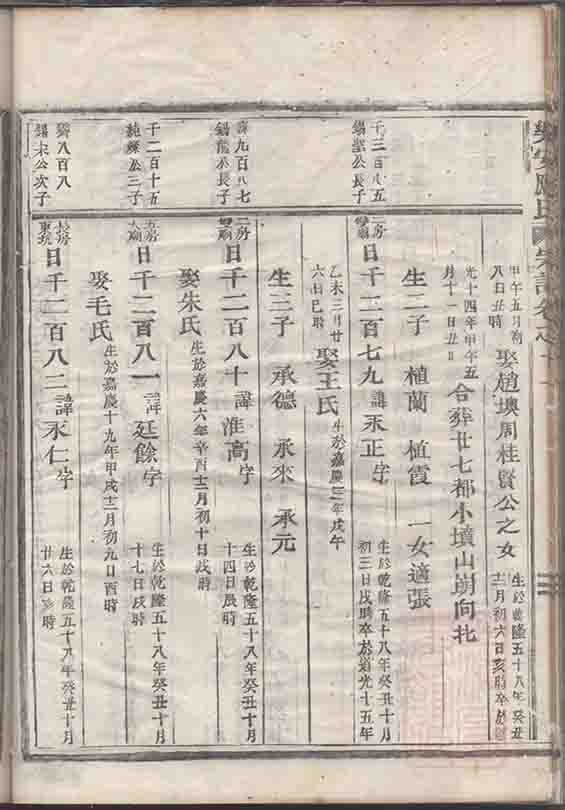 樂安 氏宗譜卷之
甲午五月初
八日丑時
娶趙墺周桂賢公之女
生於乾隆五十八年癸丑
十二月初六日亥時卒於
光十四年甲午五
月十一日丑
合葬廿七都小墳山 向北
生二子 植蘭 植霞 一女適張
千三百八五
錫 公長子
二房
日千二百七九諱永正字
生於乾隆五十八年癸丑十月
初三日戌時卒於道光十五年
乙未三月廿
六日巳時
娶王氏
生於嘉慶三年戊午
生三子 承德 承來 承元
九百八七
錫龍公長子
二房
日千二百八十諱淮高字
生於乾隆五十八年癸丑十月
十四日辰時
娶朱氏
生於嘉慶六年辛酉十二月初十日戌時
千二百十五
純 公三子
五房
日千二百八一諱廷餘字
生於乾隆五十八年癸丑十月
十七日戌時
娶毛氏
生於嘉慶十九年甲戌十二月初九日酉時
八百八
錫宋公次子
長房
東坑
日千二百八二諱永仁字
生於乾隆五十八年癸丑十月
廿六日亥時